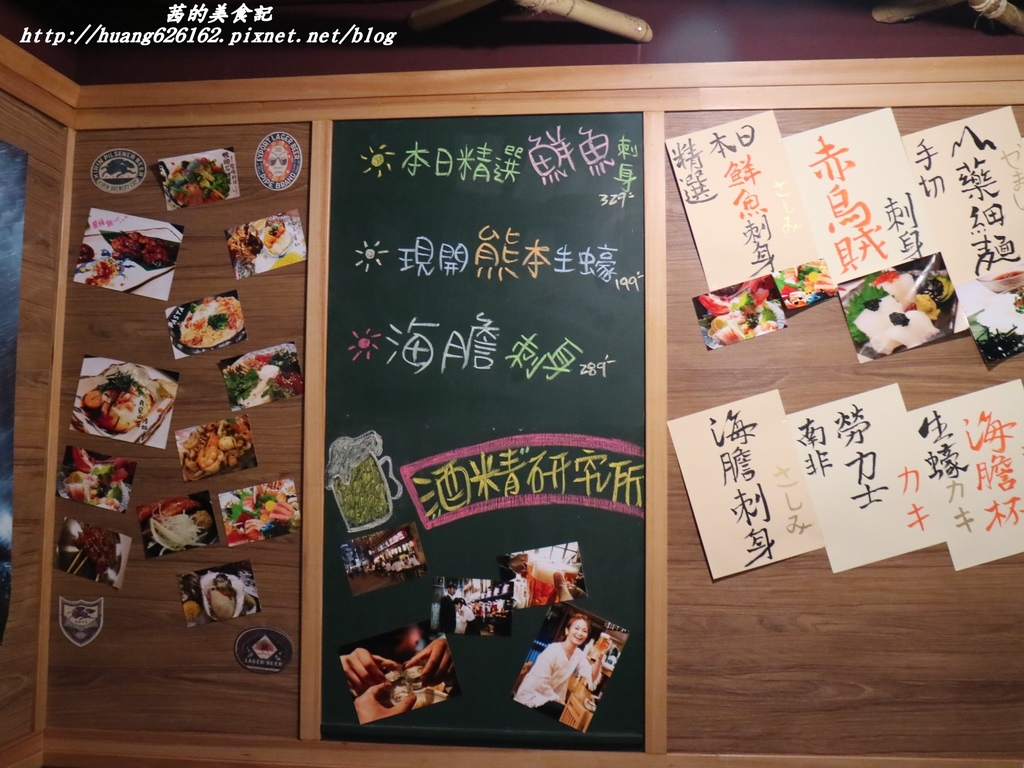 茜的美食記
http://huang626162.pixnet.net/blog
PILSENER BEER
EXPORT LAGER BEER
PIPE BRAND
PASTA
LAGER BEER
本日精選鮮魚刺身
329
現開熊本生蠔
199
海膽刺身
289
酒精研究所
本日
精選
鮮魚刺身
さしみ
赤鳥賊
刺身
手切
山藥細麵
海膽刺身
さしみ
南非
勞力士
カキ
生蠔
カキ
海膽杯